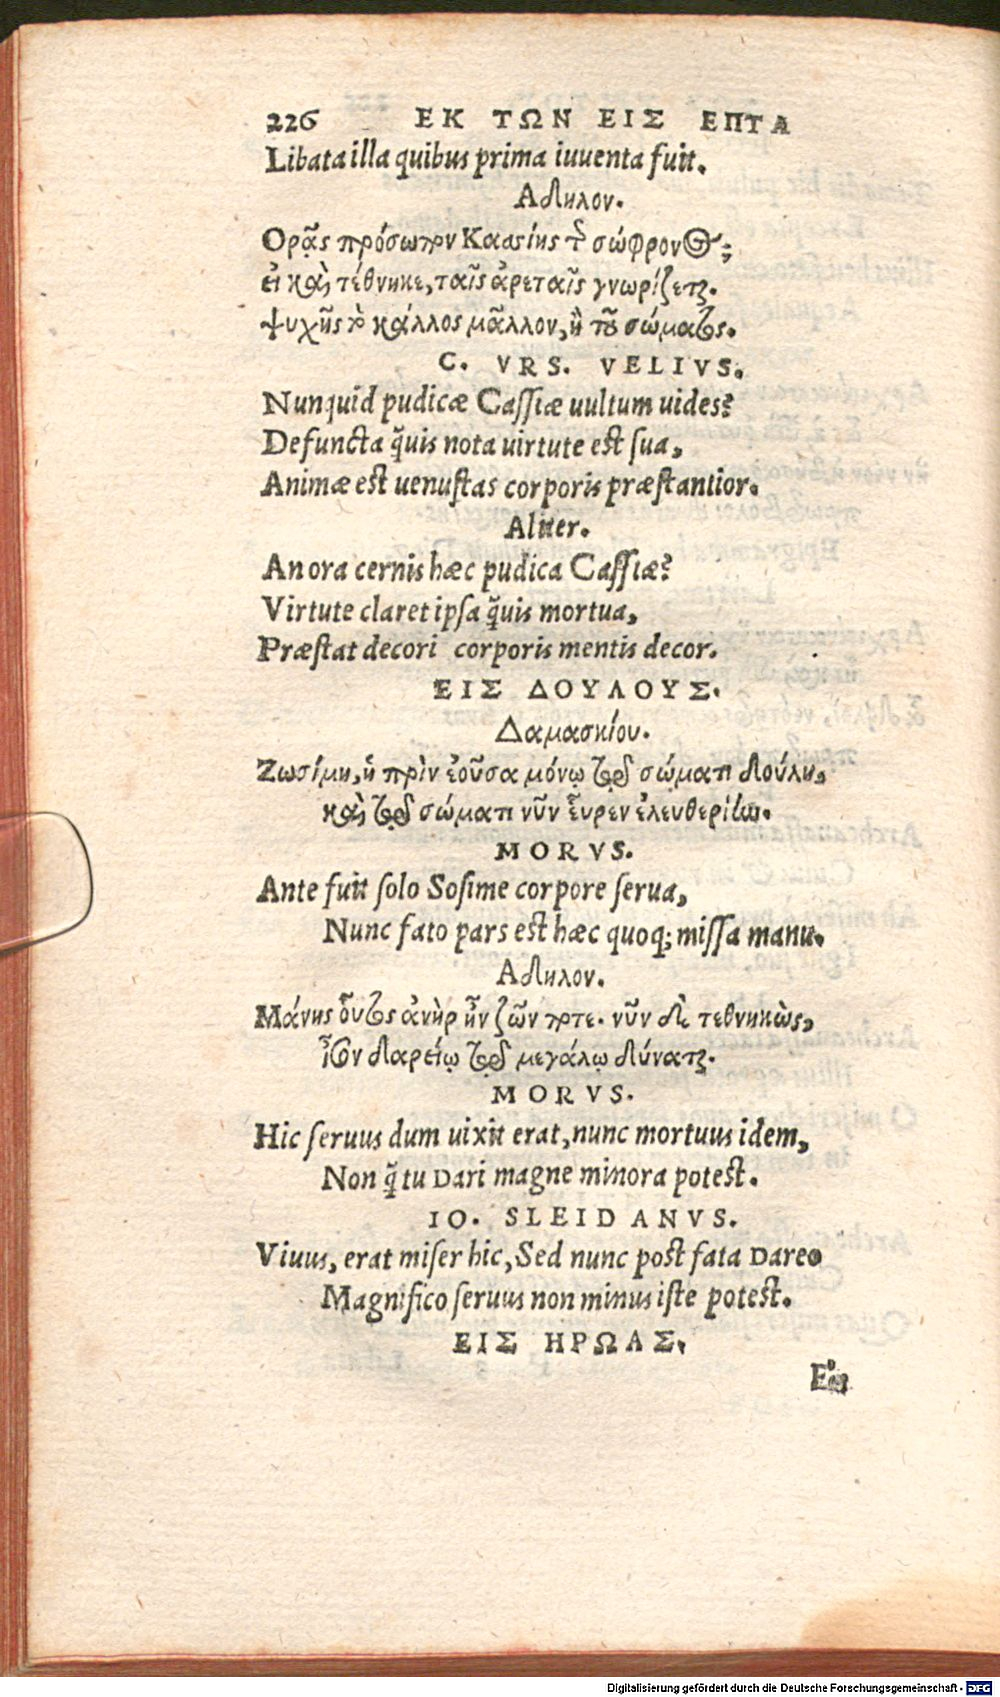 226 ΕΚ ΤΩΝ ΕΙΣ ΕΠΤΑ
Libata illa quibus prima iuuenta fuit.
Αδηλον.
Ορᾷς πρόσωπον Κασσίης τῆς σώφρονος;
εἰ καὶ τέθνηκε, ταῖς ἀρεταῖς γνωρίζεται.
Ψυχῆς τὸ κάλλος μᾶλλον, ἢ τοῦ σώματος.
C. VRS. VELIVS.
Nunquid pudicæ Caſſiæ uultum uides?
Defuncta q̃uis nota uirtute eſt ſua,
Animæ eſt uenuſtas corporis præſtantior.
Aliter.
An ora cernis hæc pudica Caſſiæ?
Virtute claret ipſa q̃uis mortua,
Præſtat decori corporis mentis decor.
ΕΙΣ ΔΟΥΛΟΥΣ.
Δαμασκίου.
Ζωσίμη, ἡ πρὶν ἐοῦσα μόνῳ τῷ σώματι δούλη,
καὶ τῷ σώματι νῦν εὗρεν ἐλευθερίην.
MORVS.
Ante fuit ſolo Soſime corpore ſerua,
Nunc fato pars eſt hæc quoq; miſſa manu.
Αδηλον.
Μάνης οὗτος ἀνὴρ ἦν ζῶν ποτε. νῦν δὲ τεθνηκὼς,
ἶσον Δαρείῳ τῷ μεγάλῳ δύναται.
MORVS.
Hic ſeruus dum uixit erat, nunc mortuus idem,
Non q̃ tu Dari magne minora poteſt.
IO. SLEIDANVS.
Viuus, erat miſer hic, Sed nunc poſt fata Dareo
Magnifico ſeruus non minus iſte poteſt.
ΕΙΣ ΗΡΩΑΣ.
Digitalisierung gefördert durch die Deutsche Forschungsgemeinschaft - DFG